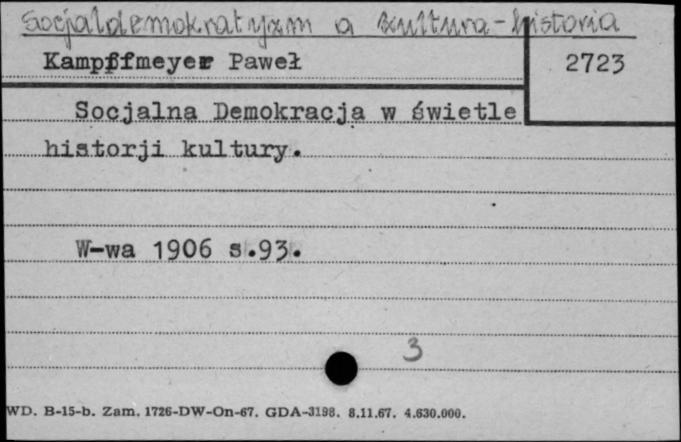 Socjaldemokratyzm a kultura - historia
Kampffmeyer Paweł
2723
Socjalna Demokracja w świetle
historji kultury.
W-wa 1906 s.93.
3
WD. B-15-b. Zam. 1726-DW-On-67. GDA-3198. 8.11.67. 4.630.000.